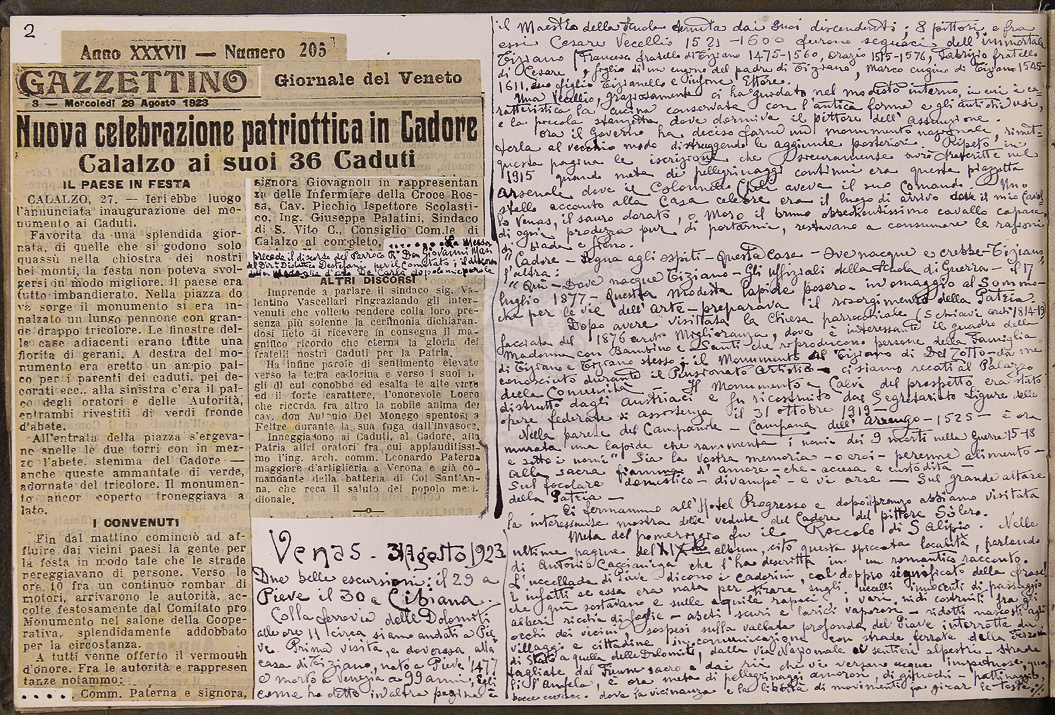 2
Anno XXXVII — Numero 205
GAZZETTINO
Giornale del Veneto
3 - Mercoledì 29 Agosto 1923
Nuova celebrazione patriottica in Cadore
Calalzo ai suoi 36 Caduti
IL PAESE IN FESTA
CALALZO, 27. — Ieri ebbe luogo
l'annunciata inaugurazione del mo-
numento ai Caduti.
Favorita da una splendida gior-
nata, di quelle che si godono solo
quassù nella chiostra dei nostri
bei monti, la festa non poteva svol-
gersi in modo migliore. Il paese era
tutto imbandierato. Nella piazza do
ve sorge il monumento si era in-
nalzato un lungo pennone con gran-
de drappo tricolore. Le finestre del-
le case adiacenti erano tutte una
fiorita di gerani. A destra del mo-
numento era eretto un ampio pal-
co per i parenti dei caduti, pei de-
corati ecc., alla sinistra c'era il pal-
co degli oratori e delle Autorità,
entrambi rivestiti di verdi fronde
d'abete.
All'entrata della piazza s'ergeva-
no snelle le due torri con in mez-
zo l'abete, stemma del Cadore —
anche queste ammantate di verde,
adornate del tricolore. Il monumen-
to ancor coperto troneggiava a
lato.
I CONVENUTI
Fin dal mattino cominciò ad af-
fluire dai vicini paesi la gente per
la festa in modo tale che le strade
nereggiavano di persone. Verso le
ore 10 fra un continuo rombar di
motori, arrivarono le autorità, ac-
colte festosamente dal Comitato pro
Monumento nel salone della Coope-
rativa, splendidamente addobbato
per la circostanza.
A tutti venne offerto il vermouth
d'onore. Fra le autorità e rappresen
tanze notammo:
..... Comm. Paterna e signora,
signora Giovagnoli in rappresentan
ze delle Infermiere della Croce Ros-
sa, Cav. Picchio Ispettore Scolasti-
co, Ing. Giuseppe Palatini, Sindaco
di S. Vito C., Consiglio Com.le di
Calalzo al completo, ...... La Messa
precede il discorso del Parroco
ALTRI DISCORSI
Imprende a parlare il sindaco sig. Va-
lentino Vascellari ringraziando gli inter-
venuti che vollero rendere colla loro pre-
senza più solenne la cerimonia dichiaran-
dosi lieto di ricevere in consegna il ma-
gnifico ricordo che eterna la gloria dei
fratelli nostri Caduti per la Patria.
Ha infine parole di sentimento elevate
verso la terra cadorina e verso i suoi fi-
gli di cui conobbe ed esalta le alte virtù
ed il forte carattere, l'onorevole Loero
che ricorda fra altro la nobile anima del
cav. don Augusto Del Monego spentosi a
Feltre durante la sua fuga dall'invasore.
Inneggiando ai Caduti, al Cadore, alla
Patria altri oratori fra cui applauditissi-
mo l'ing. arch. comm. Leonardo Paterna
maggiore d'artiglieria a Verona e già co-
mandante della batteria di Col Sant'An-
na, che reca il saluto del popolo meri-
dionale.
Venas - 31 Agosto 1923
Due belle escursioni: il 29 a
Pieve il 30 a Cibiana.
Colla ferrovia delle Dolomiti
alle ore 11 circa siamo andati a Pie-
ve. Prima visita, e doverosa alla
casa di Tiziano, nato a Pieve 1477
e morto a Venezia a 99 anni, egli
come ho detto in altra pagina è
il Maestro della Scuola tenuta dai suoi discendenti; 8 pittori, e fra
essi Cesare Vecellio 1521-1600 furono seguaci dell'immortale
Tiziano (Francesco fratello di Tiziano 1475-1560, Orazio 1515-1576, Fabrizio fratello
di Cesare, figlio di un cugino del padre di Tiziano, Marco cugino di Tiziano 1545-
1611, suo figlio Tizianello e infine Ettore.
Una Vecellio, graziosamente ci ha guidato nel modesto interno, in cui è ca-
ratteristica la cucina conservata con l'antica forma e gli antichi usi,
e la piccola stanzetta dove dormiva il pittore dell'Assunzione.
Ora il Governo ha deciso farne un monumento nazionale, rimet-
terla al vecchio modo distruggendo le aggiunte posteriori. Ripeto in
questa pagina le iscrizioni che sicuramente avrò trascritte nel
1915 quando meta di pellegrinaggi continui era questa piazzetta
arsenale dove il Colonnello aveva il suo Comando. Uno
stallo accanto alla Casa celebre era il luogo di arrivo dove il mio Cesio
di Venas, il sauro dorato, o Moro il bruno obbedientissimo cavallo capace
di ogni prodezza pur di portarmi, restavano a consumare le razioni
di biada e fieno.
"Cadore - Segna agli ospiti - Questa casa - Ove nacque e crebbe - Tiziano,
l'altra:
"Qui - Dove nacque Tiziano - Gli uffizali della Scuola di Guerra - il 17
luglio 1877 - Questa modesta lapide posero - in omaggio al Sommo -
che per le vie dell'arte - preparava il risorgimento della Patria.
Dopo avere visitata la Chiesa parrocchiale (Schiavi arch. 1814-19
facciata del 1876 arch. Migliorana, dove è interessante il quadro della
Madonna con Bambino e Santi che riproducono persone della famiglia
di Tiziano e Tiziano stesso; il Monumento al Tiziano di Del Zotto - da me
conosciuto durante il Pensionato Artistico - ci siamo recati al Palazzo
della Comunità. Il Monumento a Calvi del prospetto era stato
distrutto dagli Austriaci e fu ricostruito dal Segretariato Ligure delle
opere federate di assistenza il 31 ottobre 1919 -
Nella parete del Campanile - Campana dell'Arrengo - 1525 - è ora
murata una lapide che rammenta i nomi dei 9 morti nella guerra 15-18
e sotto i nomi "Sia la vostra memoria - o eroi - perenne alimento -
alla sacra fiamma d'amore - che accesa e custodita -
Sul focolare domestico - divampò - e vi arse - Sul grande altare
della Patria -
Ci fermammo all'Hotel Progresso e dopo il pranzo abbiamo visitata
la interessante mostra delle vedute del Cadore del pittore Sólero.
Meta del pomeriggio fu il Roccolo di S. Alipio. Nelle
ultime pagine del album, cito questa spiccata località, parlando
di Antonio Caccianiga che l'ha descritta in un romantico racconto.
L'uccellada di Pieve dicono i cadorini, col doppio significato della frase!
E infatti se essa era nata per tirare agli uccelli innocenti di passaggio
che quì sostavano e sulle aquile rapaci i vari nidi costruiti fra gli
alberi ricchi di foglie - abeti scuri e larici vaporosi - ridotti nascosti agli
occhi dei vicini e sospesi sulla vallata profonda del Piave interrotta da
villaggi e cittadine in comunicazione con strade ferrate della ferrovia
di Stato o quella delle Dolomiti, dalla via Nazionale o sentieri alpestri, strade
tagliate dal Piave sacro e dai rii che vi versano acque impetuose, qua
l'Ansela, è ora meta di pellegrinaggi amorosi, di giuochi - pattinaggio
dove la vicinanza e la libertà di movimenti fa girar le teste.